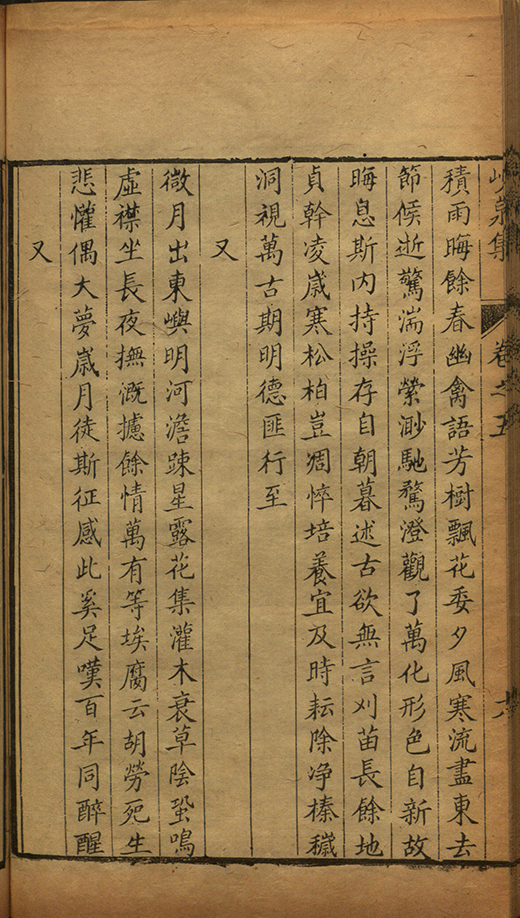 峴泉集 卷之五 十八
積雨晦餘春幽禽語芳樹飄花委夕風寒流盡東去
節候逝驚湍浮縈渺馳騖澄觀了萬化形色自新故
晦息斯内持操存自朝暮述古欲無言刈苗長餘地
貞幹凌歲寒松柏豈凋悴培養宜及時耘除净榛穢
洞視萬古期明德匪行至
又
微月出東嶼明河澹踈星露花集灌木衰草陰蛩鳴
虛襟坐長夜撫溉攄餘情萬有等埃腐云胡勞死生
悲懽偶大夢歲月徒斯征感此奚足嘆百年同醉醒
又